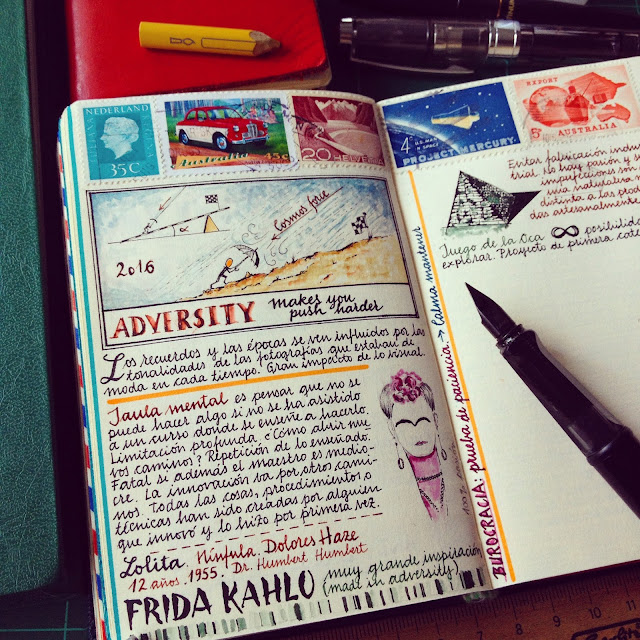 NEDERLAND
35C
Australia 45c
20 HELVETIA
2016
Cosmos force
ADVERSITY makes you
push harder
Los recuerdos y las épocas se ven influidos por las
tonalidades de las fotografías que estaban de
moda en cada tiempo. Gran impacto de lo visual.
Jaula mental es pensar que no se
puede hacer algo si no se ha asistido
a un curso donde se enseñe a hacerlo.
Limitación profunda. ¿Cómo abrir nue
vos caminos? Repetición de lo enseñado.
Fatal si además el maestro es medio-
cre. La innovación va por otros cami-
nos. Todas las cosas, procedimientos o
técnicas han sido creadas por alguien
que innovó y lo hizo por primera vez.
Lolita. Nínfula. Dolores Haze
12 años. 1955. Dr. Humbert Humbert
FRIDA KAHLO muy grande inspiración
(made in adversity)
4¢ U.S. MAN
IN SPACE
PROJECT MERCURY
EXPORT
5c AUSTRALIA
BUROCRACIA: prueba de paciencia. → Calma mantener
Evitar fabricación indus
trial. No hay pasión y
imperfecciones son
una naturaleza
distinta a las crea
das artesanalmente
Juego de la Oca ∞ posibilid
explorar. Proyecto de primera cate
9 10 11 12